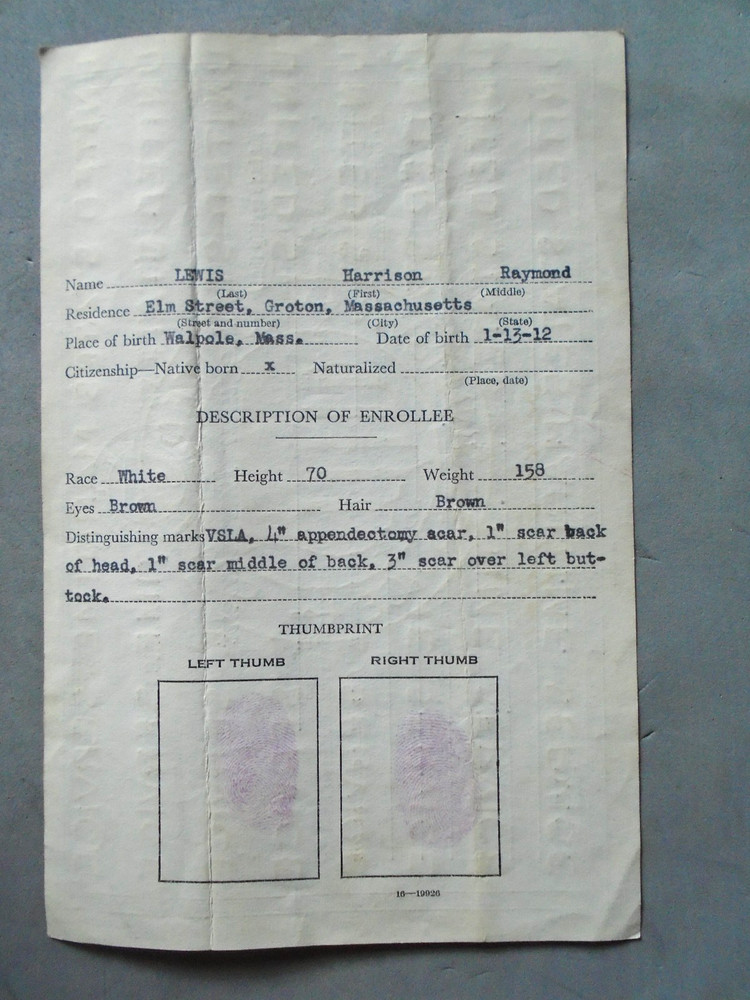 Name LEWIS Harrison Raymond
(Last) (First) (Middle)
Residence Elm Street, Groton, Massachusetts
(Street and number) (City) (State)
Place of birth Walpole, Mass. Date of birth 1-13-12
Citizenship—Native born x Naturalized
(Place, date)
DESCRIPTION OF ENROLLEE
Race White Height 70 Weight 158
Eyes Brown Hair Brown
Distinguishing marks VSLA, 4" appendectomy acar, 1" scar back
of head, 1" scar middle of back, 3" scar over left but-
tock.
THUMBPRINT
LEFT THUMB RIGHT THUMB
16—19926